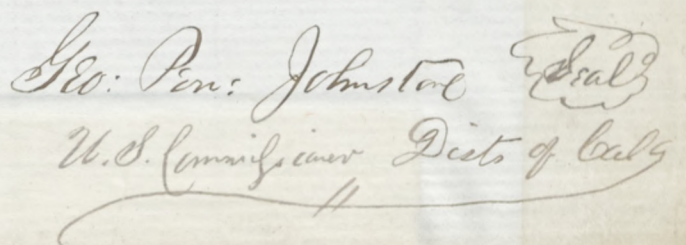 Geo: Pen: Johnston Seal
U. S. Commissioner Dists of Cala